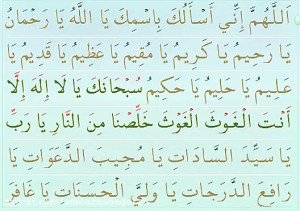 اَللّٰهُمَّ اِنِّي اَسْاَلُكَ بِاسْمِكَ يَا اَللّٰهُ يَا رَحْمٰنُ
يَا رَحِيمُ يَا كَرِيمُ يَا مُقِيمُ يَا عَظِيمُ يَا قَدِيمُ يَا
عَلِيمُ يَا حَلِيمُ يَا حَكِيمُ سُبْحَانَكَ يَا لَا اِلٰهَ اِلَّا
اَنْتَ الْغَوْثَ الْغَوْثَ خَلِّصْنَا مِنَ النَّارِ يَا رَبِّ
يَا سَيِّدَ السَّادَاتِ يَا مُجِيبَ الدَّعَوَاتِ يَا
رَافِعَ الدَّرَجَاتِ يَا وَلِيَّ الْحَسَنَاتِ يَا غَافِرَ